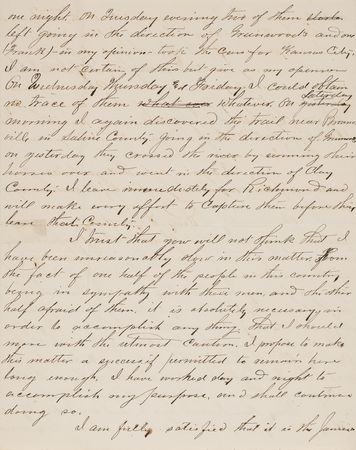 one night. On Tuesday evening two of them
left going in the direction of Greenwood and
Frank) in my opinion took the Cars for Kansas City.
I am not certain of this but give as my opinion
On Wednesday Thursday & Friday, I could obtain
no trace of them what ever whatever. On yesterday Saturday
morning I again discovered the trail near Brown
ville in Saline County going in the direction of
on yesterday they crossed the river by swiming their
horses over and went in the direction of Clay
County. I leave immediately for Richmond and
will make every effort to Capture them before they
leave that County.
I trust that you will not think that I
have been unreasonably slow in this matter, from
the fact of one half of the people in this country
being in sympathy with these men, and the other
half afraid of them, it is absolutely necessary in
order to accomplish any thing that I should
move with the utmost caution. I propose to make
this matter a success if permitted to remain here
long enough. I have worked day and night to
accomplish my purpose, and shall continue
doing so.
I am fully satisfied that it is the James